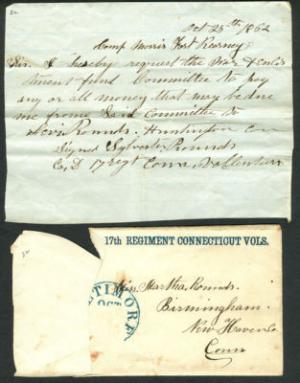 Oct 25th 1862
Camp Morris Fort Kearney
Sir I hereby request the War & Enlis
tment fund Committee to pay
any or all money that may be due
me from Said Committee to
Levi Rounds. Huntington Con
Signed Sylvester Rounds
Co D 17 regt Conn Vollenteers
17th REGIMENT CONNECTICUT VOLS.
TIMORE
OCT
Miss Martha Rounds.
Birmingham.
New Haven Co
Conn